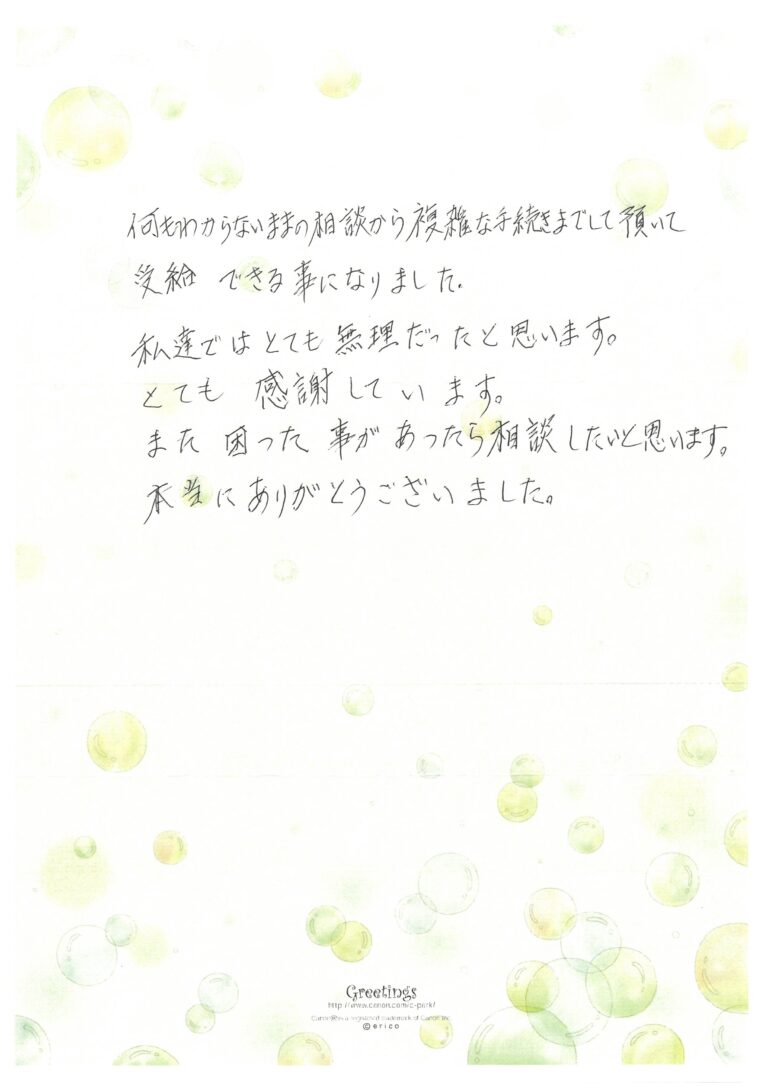 何もわからないままの相談から複雑な手続きまでして預いて
受給 できる事になりました.
私達ではとても無理だったと思います。
とても 感謝しています。
また 困った 事が あったら相談したいと思います。
本当にありがとうございました。
Greetings
http://www.canon.com/c-park/
Canon is a registered trademark of Canon Inc.
© erico